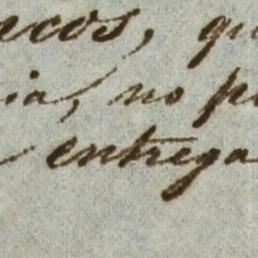 acos, qu
ia, no p
entrega